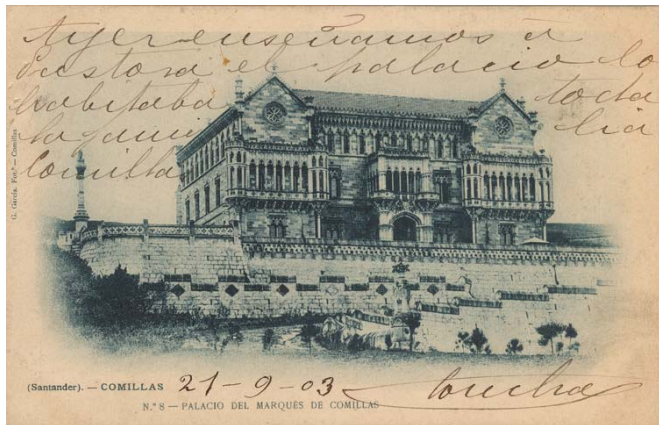 Ayer enseñamos a
Pastora el palacio lo
habitaba toda
la familia
Comillas
G. García, Fot.º — Comillas
(Santander). — COMILLAS 21-9-03 Concha
N.º 8 — PALACIO DEL MARQUÉS DE COMILLAS